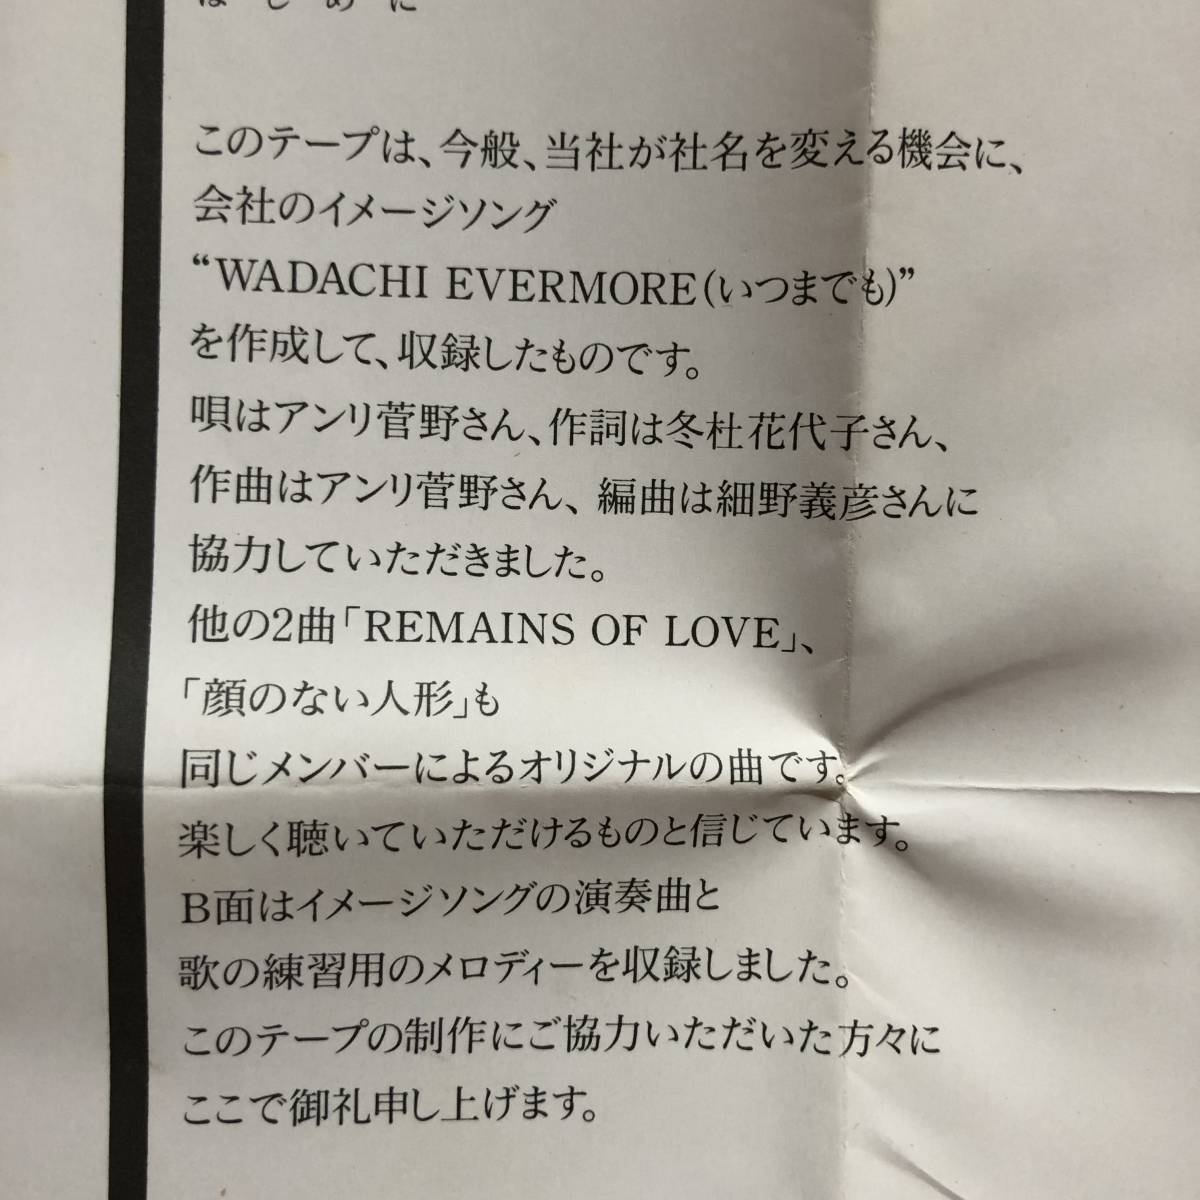 はじめに
このテープは、今般、当社が社名を変える機会に、
会社のイメージソング
“WADACHI EVERMORE(いつまでも)”
を作成して、収録したものです。
唄はアンリ菅野さん、作詞は冬杜花代子さん、
作曲はアンリ菅野さん、編曲は細野義彦さんに
協力していただきました。
他の2曲「REMAINS OF LOVE」、
「顔のない人形」も
同じメンバーによるオリジナルの曲です。
楽しく聴いていただけるものと信じています。
B面はイメージソングの演奏曲と
歌の練習用のメロディーを収録しました。
このテープの制作にご協力いただいた方々に
ここで御礼申し上げます。